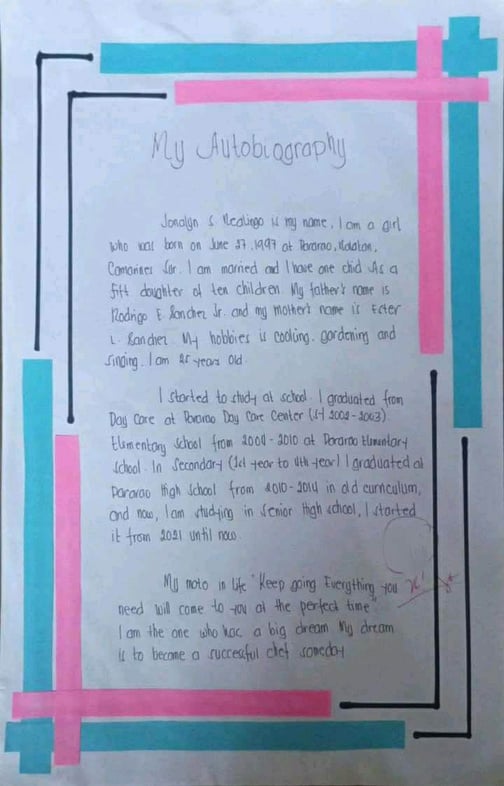 My Autobiography
Jonalyn S. Realingo is my name. I am a girl
who was born on June 27, 1997 at Pararao, Balatan,
Camarines Sur. I am married and I have one chid As a
fift daughter of ten children. My father's name is
Rodrigo E Sanchez Jr. and my mother's name is Ester
L. Sanchez. My hobbies is cooking. gardening and
singing. I am 25 years old.
I started to study at school. I graduated from
Day Care at Pararao Day Care Center (SY 2002-2003)
Elementary School from 2004-2010 at Pararao Elementary
School. In Secondary (1st year to 4th year) I graduated at
Pararao High School from 2010-2014 in old curriculum,
and now, I am studying in Senior High School, I started
it from 2021 until now.
My moto in life "Keep going Everything you
need will come to you at the perfect time"
I am the one who has a big dream My dream
is to become a successful chef someday